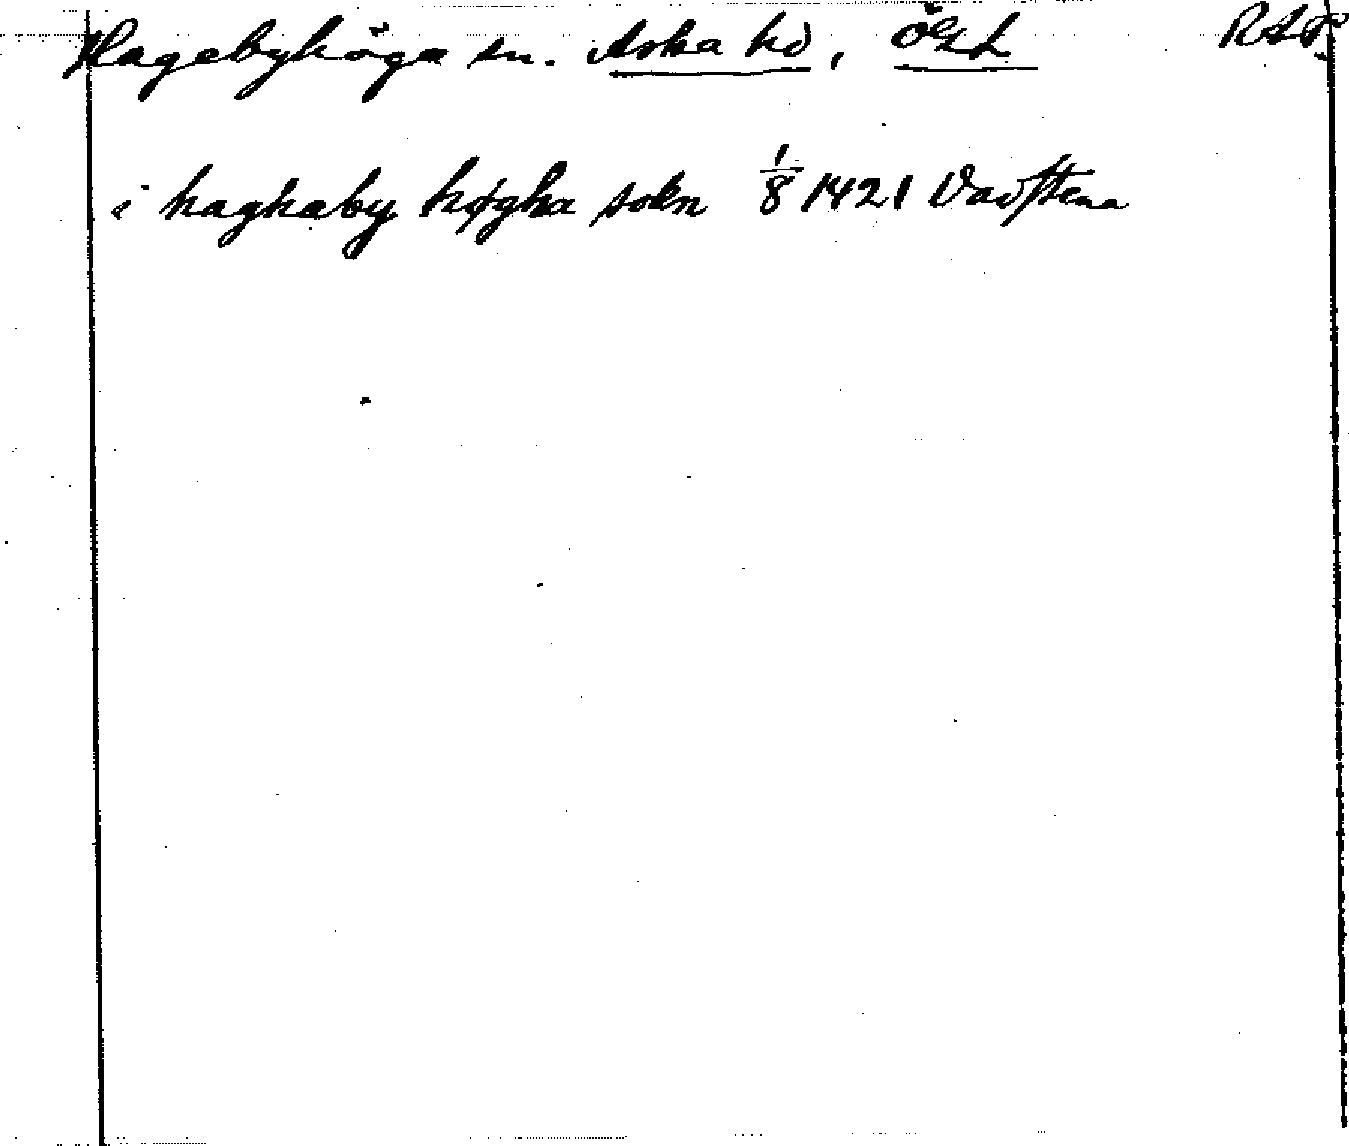 Hagebyhöga sn. Aska hd, Ögtl RAP
i haghaby høgha sokn 1/8 1421 Vadstena